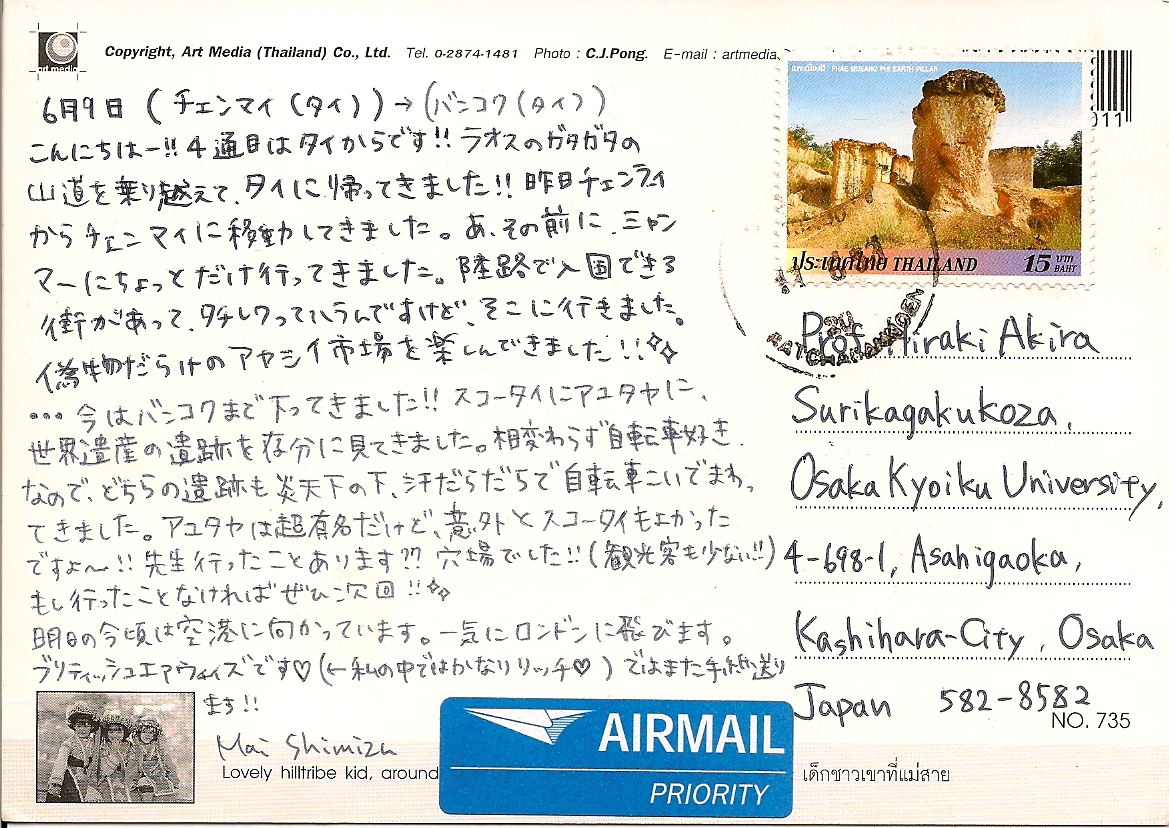 art media
Copyright, Art Media (Thailand) Co., Ltd. Tel. 0-2874-1481 Photo : C.J.Pong. E-mail : artmedia
011
แพะเมืองผี PHAE MUEANG PHI EARTH PILLAR
ประเทศไทย THAILAND 15 บาท BAHT
6月9日 (チェンマイ(タイ))→(バンコク(タイ))
こんにちはー!!4通目はタイからです!!ラオスのガタガタの
山道を乗り越えて、タイに帰ってきました!!昨日チェンライ
からチェンマイに移動してきました。あ、その前に、ミャン
マーにちょっとだけ行ってきました。陸路で入国できる
街があって、タチレクっていうんですけど、そこに行きました。
偽物だらけのアヤシイ市場を楽しんできました!!
…今はバンコクまで下ってきました!!スコータイにアユタヤに、
世界遺産の遺跡を存分に見てきました。相変わらず自転車好き
なので、どちらの遺跡も炎天下の下、汗だらだらで自転車こいでまわっ
てきました。アユタヤは超有名だけど、意外とスコータイもよかった
ですよ〜!!先生行ったことあります??穴場でした!!(観光客も少ない!!)
もし行ったことなければぜひ次回!!
明日の今頃は空港に向かっています。一気にロンドンに飛びます。
ブリティッシュエアウェイズです♡(←私の中ではかなりリッチ♡)ではまた手紙送り
ます!!
Mai Shimizu
Prof. Hiraki Akira
Surikagakukoza,
Osaka Kyoiku University,
4-698-1, Asahigaoka,
Kashihara-City, Osaka
Japan 582-8582
NO. 735
Lovely hilltribe kid, around
เด็กชาวเขาที่แม่สาย
AIRMAIL
PRIORITY